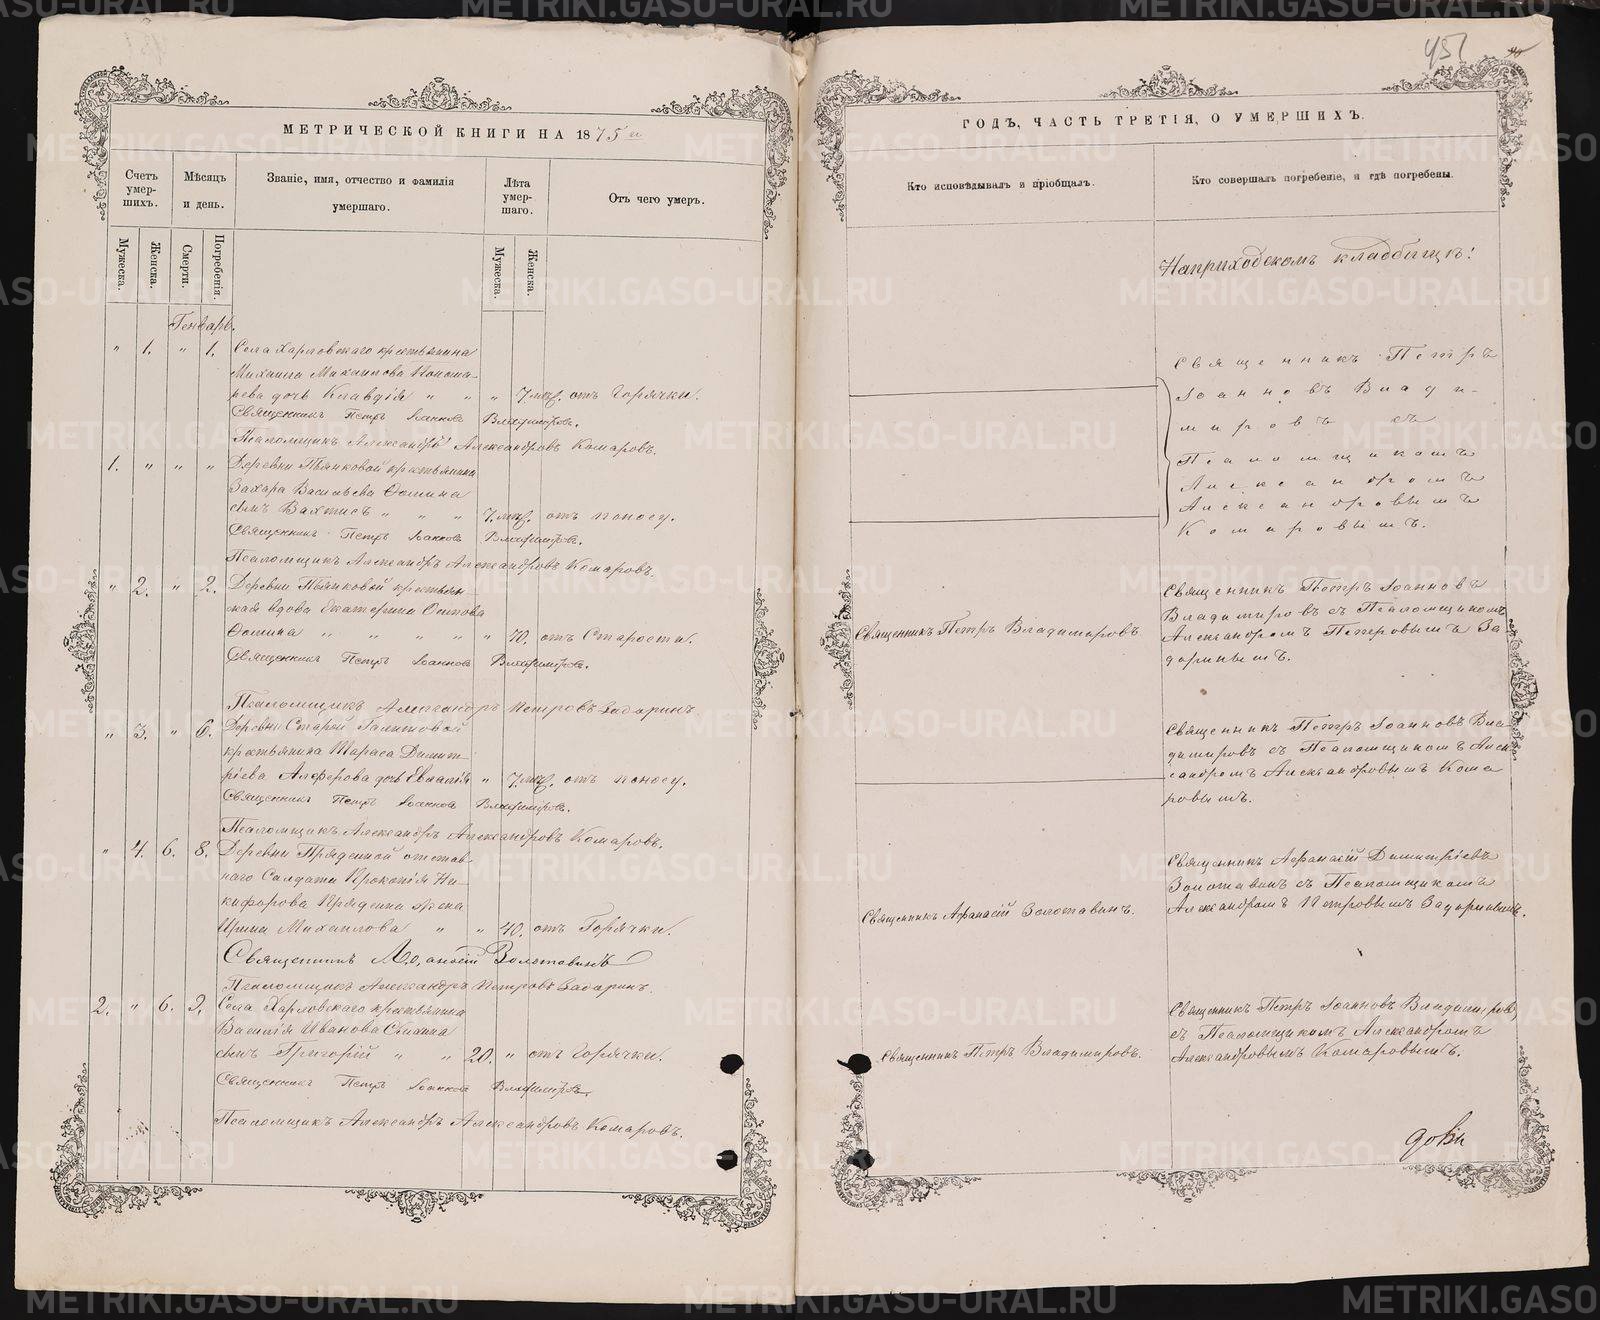 МЕТРИЧЕСКОЙ КНИГИ НА 1875 й
Счетъ умер-шихъ.
Мѣсяцъ и день.
Званіе, имя, отчество и фамилія умершаго.
Лѣта умер-шаго.
Отъ чего умеръ.
Мужеска.
Женска.
Смерти.
Погребенія.
Мужеска.
Женска.
Генварь.
" 1. " 1. Села Харловскаго крестьянина
Михаила Михаилова Понома-
рева дочь Клавдія " " " 7. мѣс. отъ Горячки.
Священникъ Петръ Іоанновъ Владимировъ.
Псаломщикъ Александръ Александровъ Комаровъ.
1. " " " Деревни Пьянковой крестьянина
Захара Васильева Фомина
сынъ " " " 7. мѣс. отъ поносу.
Священникъ Петръ Іоанновъ Владимировъ.
Псаломщикъ Александръ Александровъ Комаровъ.
" 2. " 2. Деревни Пьянковой крестьян-
ская вдова Екатерина Осипова
Фомина " " " " " 70. отъ Старости.
Священникъ Петръ Іоанновъ Владимировъ.
Псаломщикъ Александръ Петровъ Задоринъ
" 3. " 6. Деревни Старой
крестьянина Тараса Димит-
ріева Алферова дочь Евлалія " 7 мѣс. отъ поносу.
Священникъ Петръ Іоанновъ Владимировъ.
Псаломщикъ Александръ Александровъ Комаровъ.
" 4. 6. 8. Деревни Пряденной отстав-
наго Солдата Прокопія Ни-
кифорова Прядеина жена
Ирина Михаилова " " 40. отъ Горячки.
Священникъ Аѳанасій Золотавинъ
Псаломщикъ Александръ Петровъ Задоринъ.
2. " 6. 9. Села Харловскаго крестьянина
Василія Иванова
сынъ Григорій " " 20. " отъ Горячки.
Священникъ Петръ Іоанновъ Владимировъ
Псаломщикъ Александръ Александровъ Комаровъ.
451
ГОДЪ, ЧАСТЬ ТРЕТІЯ, О УМЕРШИХЪ.
Кто исповѣдывалъ и пріобщалъ.
Кто совершалъ погребеніе, и гдѣ погребены.
На приходскомъ кладбищѣ:
Священникъ Петръ
Іоанновъ Влади-
мировъ съ
Псаломщикомъ
Александромъ
Александровымъ
Комаровымъ.
Священникъ Петръ Владимировъ
Священникъ Петръ Іоанновъ
Владимировъ съ Псаломщикомъ
Александромъ Петровымъ За-
доринымъ.
Священникъ Петръ Іоанновъ Вла-
димировъ съ Псаломщикомъ Алек-
сандромъ Александровымъ Кома-
ровымъ.
Священникъ Аѳанасій Золотавинъ.
Священникъ Аѳанасій Димитріевъ
Золотавинъ съ Псаломщикомъ
Александромъ Петровымъ Задоринымъ.
Священникъ Петръ Владимировъ.
Священникъ Петръ Іоанновъ Владимировъ
съ Псаломщикомъ Александромъ
Александровымъ Комаровымъ.
METRIKI.GASO-URAL.RU